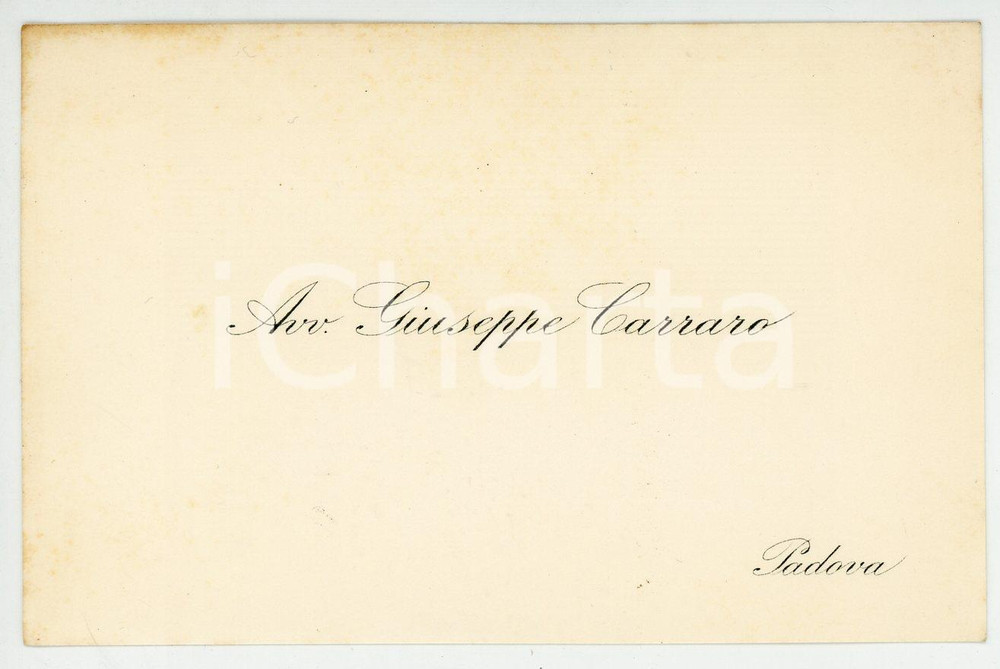 Avv. Giuseppe Carraro
iCharta
Padova